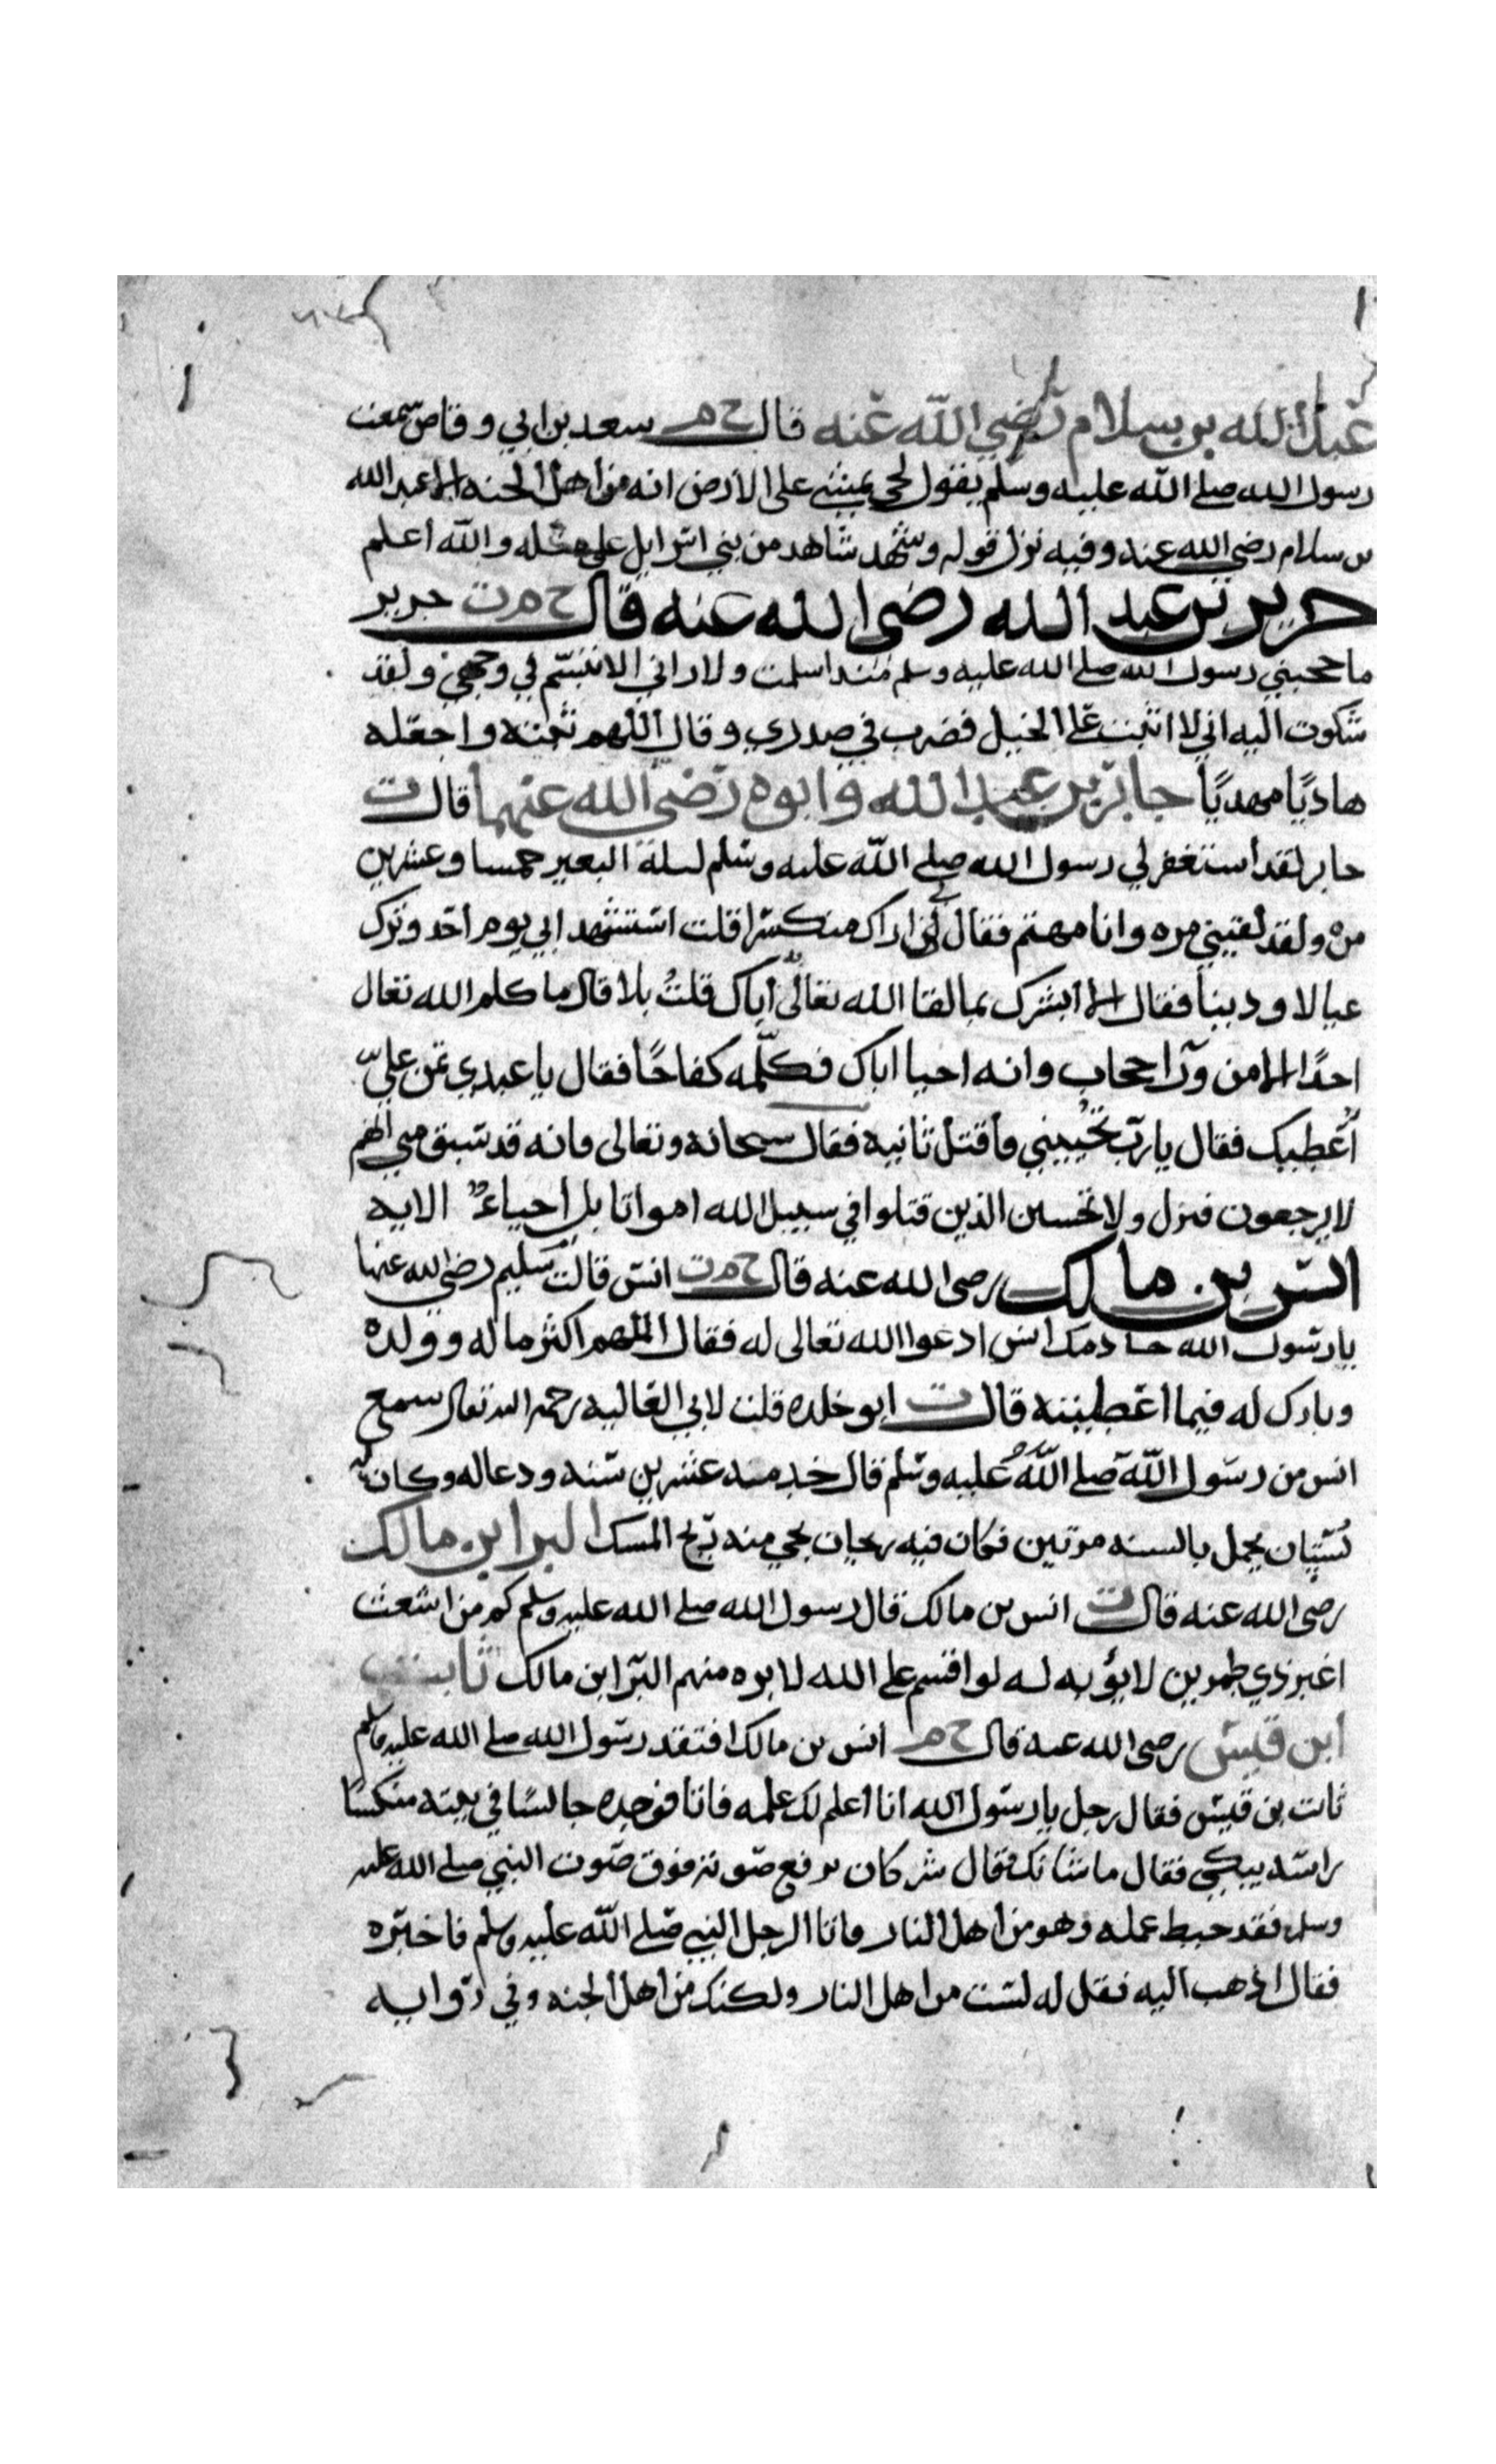 عبد الله بن سلام رضي الله عنه قال خ م سعد بن ابي وقاص سمعت
رسول الله صلى الله عليه وسلم يقول لحي يمشي على الارض انه من اهل الجنه الا عبد الله
بن سلام رضي الله عنه وفيه نزل قوله وشهد شاهد من بني اسرايل على مثله والله اعلم
جرير بن عبد الله رضى الله عنه قال خ م ت جرير
ما حجبني رسول الله صلى الله عليه وسلم منذ اسلمت ولا راني الا تبسم في وجهي ولقد
شكوت اليه اني لا اثبت على الخيل فضرب في صدري وقال اللهم ثبته واجعله
هاديًا مهديًا جابر بن عبد الله وابوه رضي الله عنهما قال ت
جابر لقد استغفر لي رسول الله صلى الله عليه وسلم ليلة البعير خمسا وعشرين
مره ولقد لقيني مره وانا مهتم فقال لي اراك منكسرا قلت استشهد ابي يوم احد وترك
عيالا ودينا فقال الا ابشرك بما لقا الله تعالى اباك قلت بلا قال ما كلم الله تعالى
احدًا الا من ورآ حجاب وانه احيا اباك فكلمه كفاحًا فقال يا عبدي تمن علي
اُعطيك فقال يا رب تحييني فاقتل ثانية فقال سبحانه وتعالى فانه قد سبق مني انهم
لا يرجعون فنزل ولا تحسبن الذين قتلوا في سبيل الله امواتا بل احياءٌ الايه
انس بن مالك رضى الله عنه قال خ م ت انس قالت سليم رضي الله عنها
يا رسول الله خادمك انس ادعوا الله تعالى له فقال اللهم اكثر ماله وولده
وبارك له فيما اعطيته قال ت ابو خلده قلت لابي العاليه رحمه الله تعالى سمع
انس من رسول الله صلى الله عليه وسلم قال خدمه عشرين سنه ودعا له وكان له
بُستان يحمل بالسنه مرتين فكان فيه ريحان يجي منه ريح المسك البرا ابن مالك
رضى الله عنه قال ت انس بن مالك قال رسول الله صلى الله عليه وسلم كم من اشعث
اغبر ذي طمرين لا يؤبه له لو اقسم على الله لابره منهم البرا ابن مالك ثابت
ابن قيس رضى الله عنه قال خ م انس بن مالك افتقد رسول الله صلى الله عليه وسلم
ثابت بن قيس فقال رجل يا رسول الله انا اعلم لك علمه فاتا فوجده جالسًا في بيته منكسًا
راسه يبكي فقال ما شانك فقال شر كان يرفع صوته فوق صوت النبي صلى الله عليه
وسلم فقد حبط عمله وهو من اهل النار فاتا الرجل النبي صلى الله عليه وسلم فاخبره
فقال اذهب اليه فقل له لست من اهل النار ولكنك من اهل الجنه وفي روايه